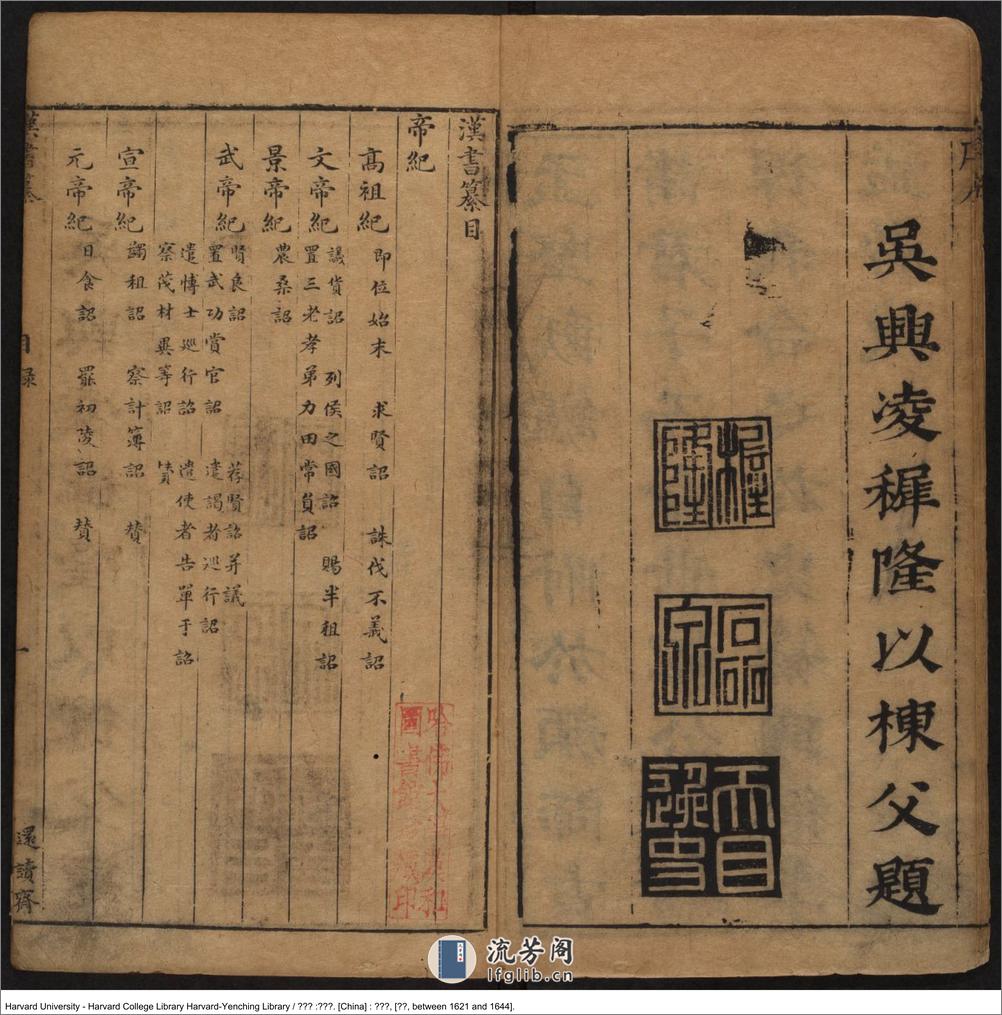 吳興凌穉隆以棟父題
穉隆
磊泉
天目逸史
漢書纂目
帝紀
高祖紀 即位始末 求賢詔 誅伐不義詔
文帝紀 議貸詔 列侯之國詔 賜半租詔
置三老孝弟力田常員詔
景帝紀 農桑詔
武帝紀 賢良詔 荐賢詔并議
置武功賞官詔 遣謁者巡行詔
遣博士巡行詔 遣使者告單于詔
察茂材異等詔 贊
宣帝紀 蠲租詔 察計簿詔 贊
元帝紀 日食詔 罷初陵詔 贊
漢書纂 目錄 一 還讀齋
哈佛大學漢和
圖書館藏印
流芳阁
lfglib.cn
Harvard University - Harvard College Library Harvard-Yenching Library / ??? :???. [China] : ???, [??, between 1621 and 1644].